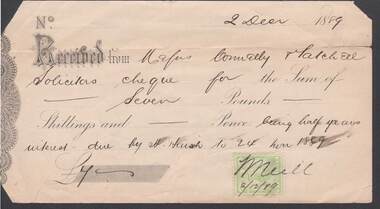 No. 2 Decr 1889
Received from Messrs Connelly & Tatchell
Solicitors cheque for the Sum of
Seven Pounds
Shillings and Pence being half years
interest due by to 24 Nov 1889
£7
2/12/89